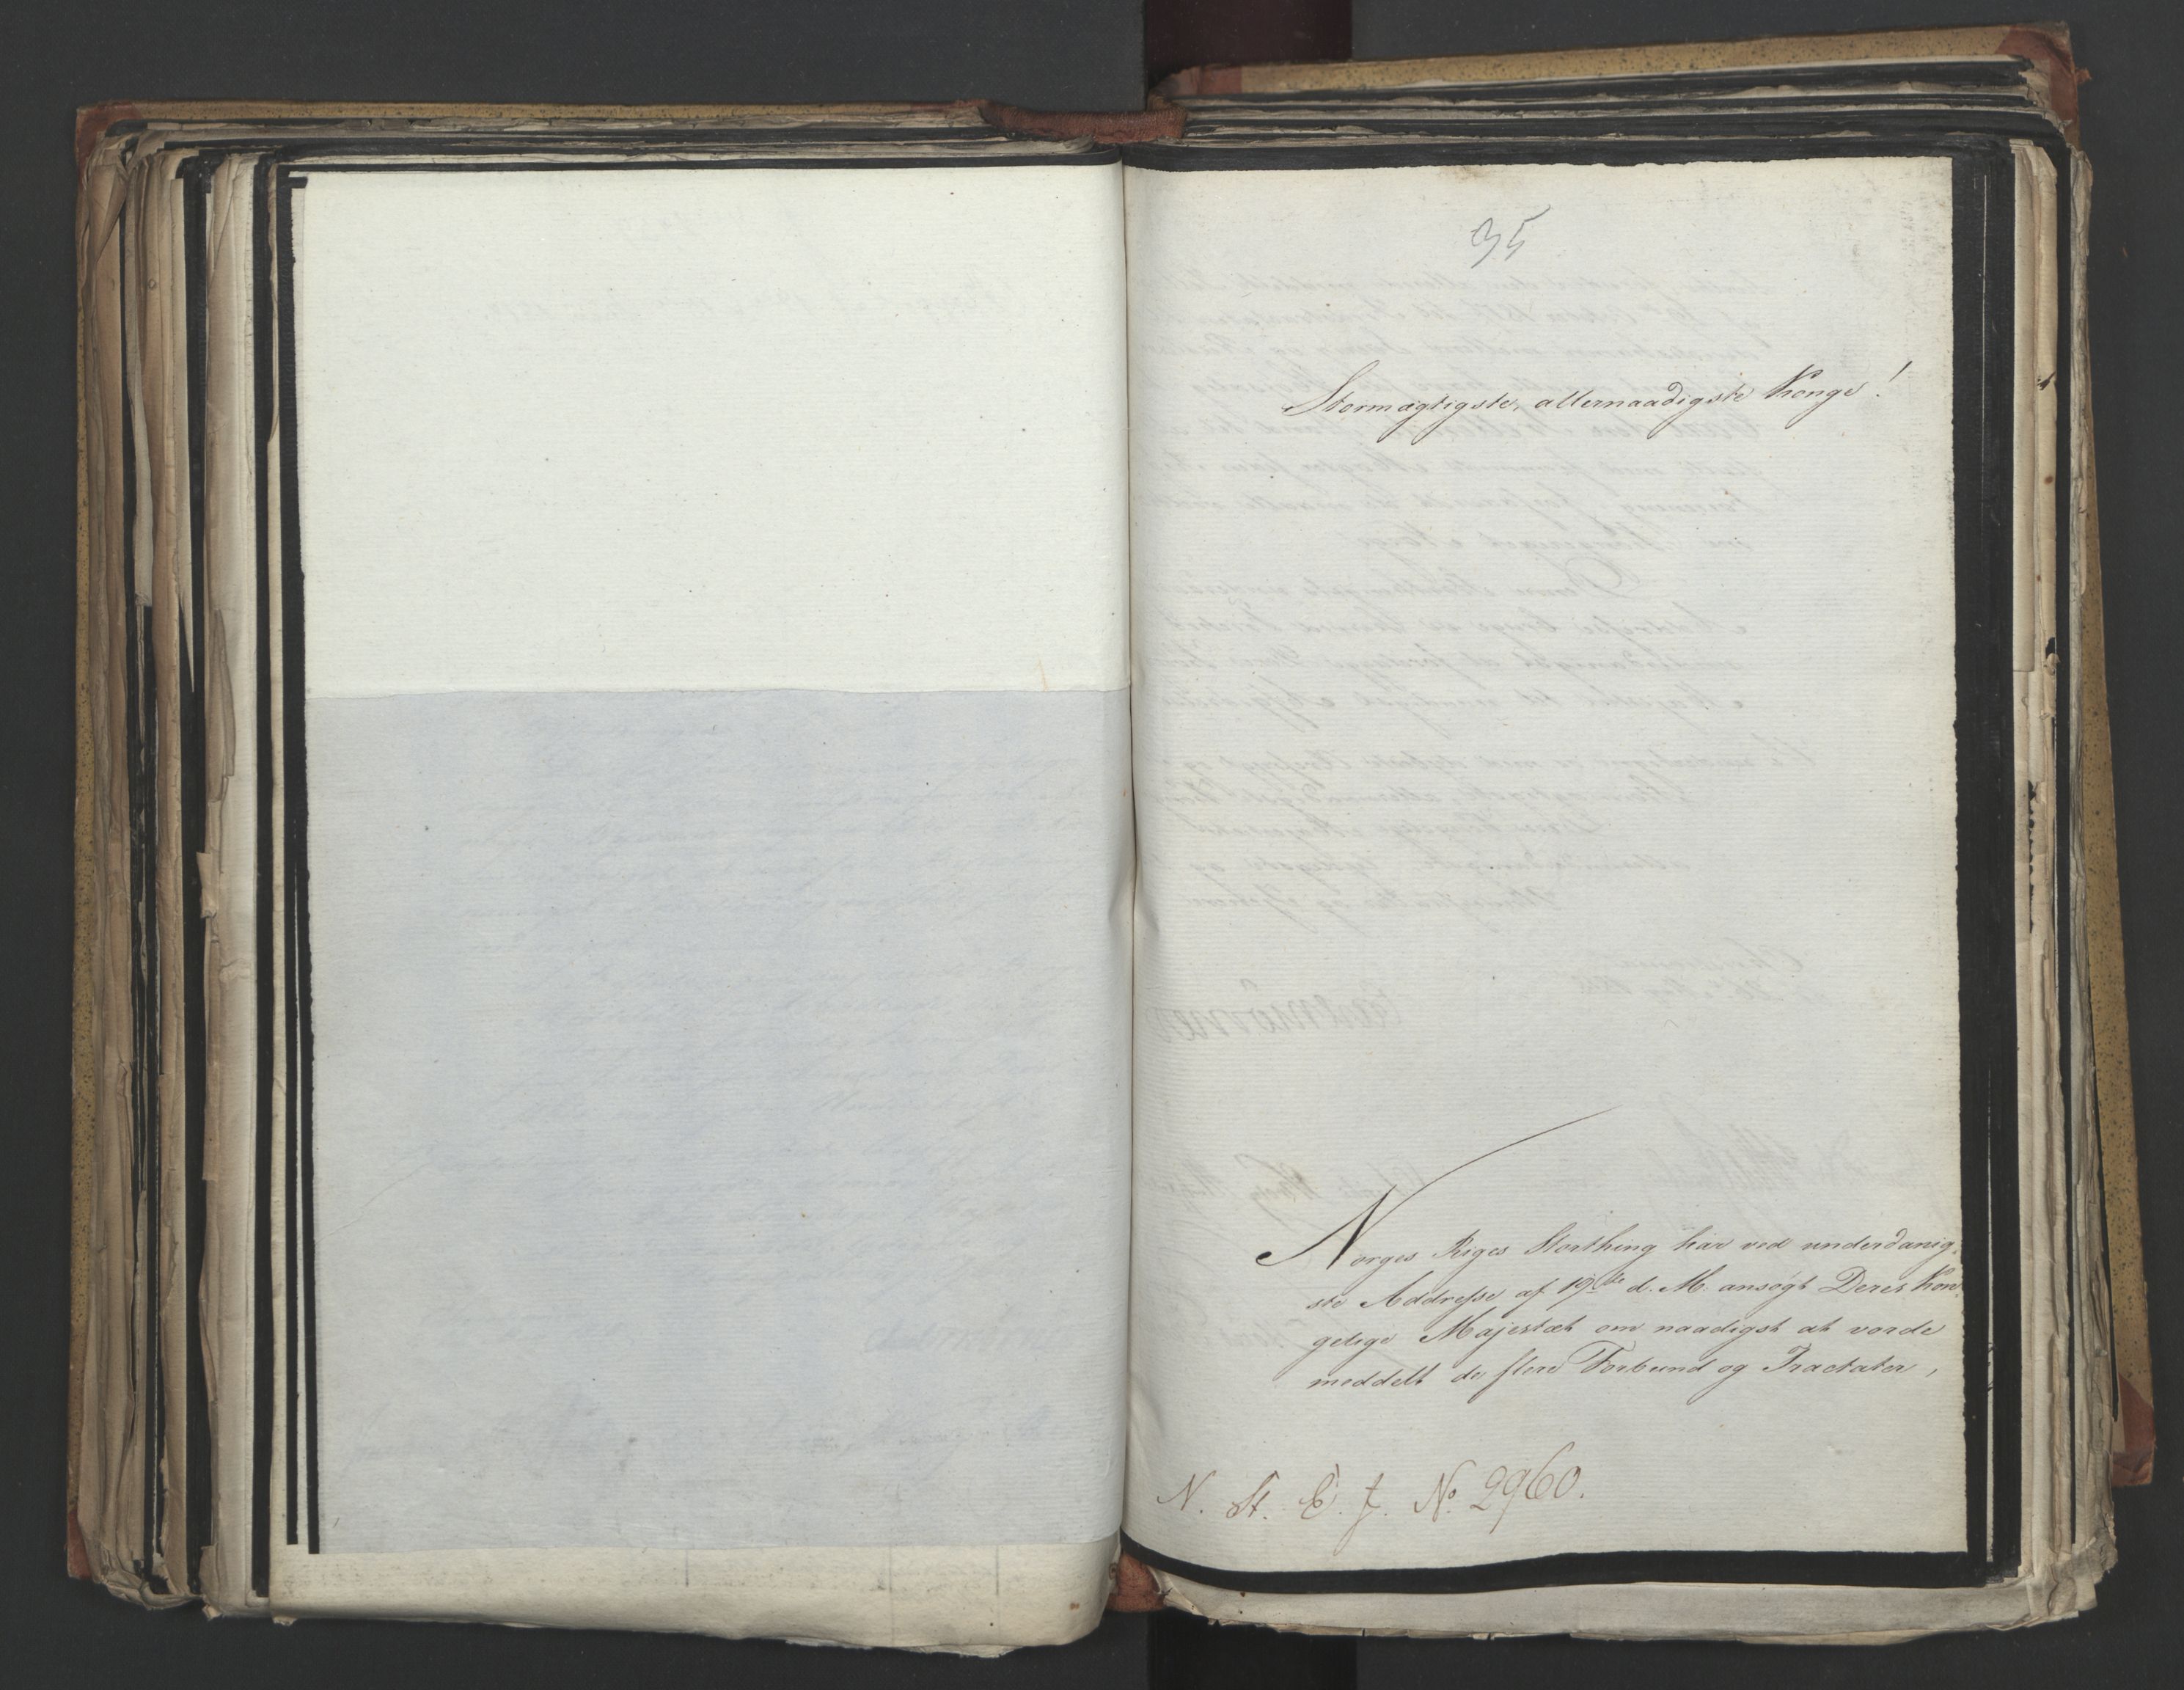 35
Stormægtigste, allernaadigste Konge!
Norges Riges Storthing har ved underdanig-
ste Addresse af 19de d. M. ansøgt Deres Kon-
gelige Majestæt om naadigst at vorde
meddelt de flere Forbund og Tractater,
N. St. E. J. No. 2960.